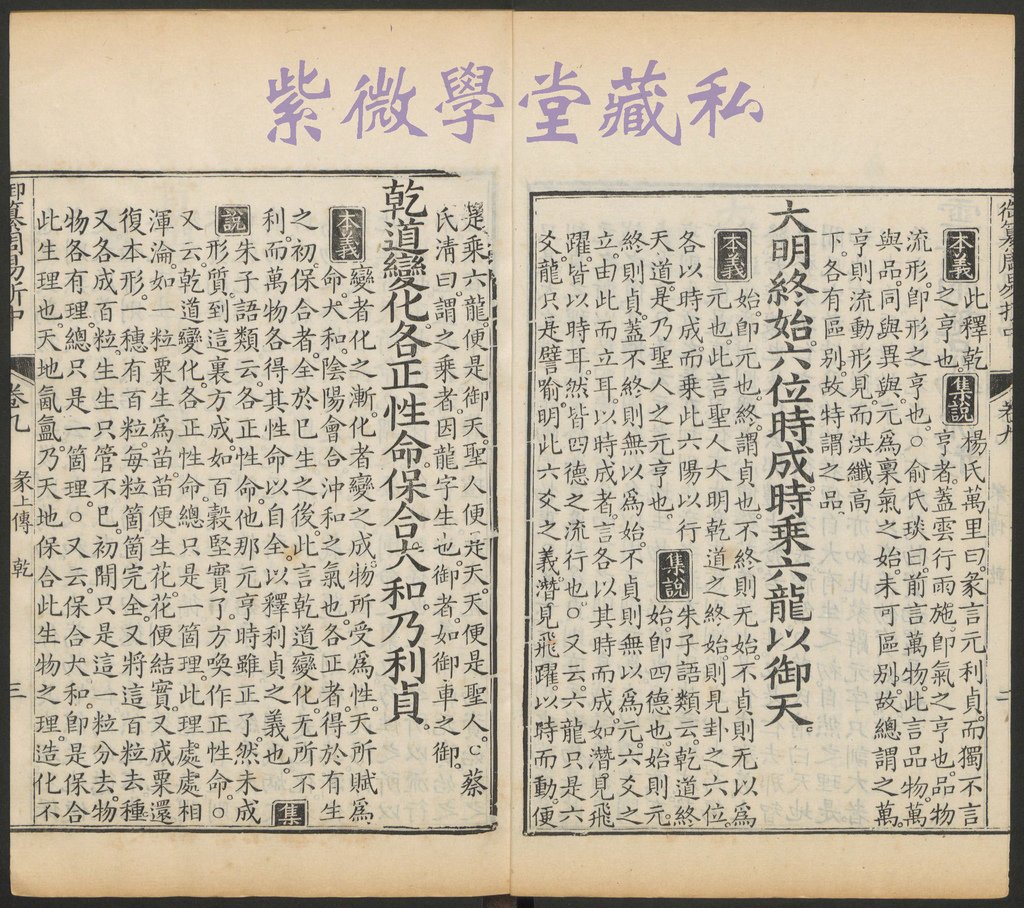 紫微學堂藏私
御纂周易折中 卷九 二
本義 此釋乾
之亨也。
集說 楊氏萬里曰。彖言元利貞。而獨不言
亨者。蓋雲行雨施。卽氣之亨也。品物
流形。卽形之亨也。○俞氏琰曰。前言萬物。此言品物。萬
與品。同與異與。元為稟氣之始。未可區别。故總謂之萬。
亨則流動形見。而洪纖高
下。各有區别。故特謂之品。
大明終始六位時成時乘六龍以御天
本義 始。卽元也。終。謂貞也。不終則无始。不貞則无以為
元也。此言聖人大明乾道之終始。則見卦之六位。
各以時成。而乘此六陽以行
天道。是乃聖人之元亨也。
集說 朱子語類云。乾道終
始。卽四德也。始則元。
終則貞。蓋不終則無以為始。不貞則無以為元。六爻之
立。由此而立耳。以時成者。言各以其時而成。如潛見飛
躍。皆以時耳。然皆四德之流行也。○又云。六龍只是六
爻。龍只是譬喻。明此六爻之義。潛見飛躍。以時而動。便
是乘六龍。便是御天。聖人便是天。天便是聖人。○蔡
氏淸曰。謂之乘者。因龍字生也。御者。如御車之御。
乾道變化各正性命保合大和乃利貞。
本義 變者化之漸。化者變之成。物所受為性。天所賦為
命。大和。陰陽會合沖和之氣也。各正者。得於有生
之初。保合者。全於已生之後。此言乾道變化。无所不
利。而萬物各得其性命以自全。以釋利貞之義也。 集
說 朱子語類云。各正性命。他那元亨時雖正了。然未成
形質。到這裏方成。如百穀堅實了。方喚作正性命。○
又云。乾道變化。各正性命。總只是一箇理。此理處處相
渾淪。如一粒粟生為苗。苗便生花。花便結實。又成粟。還
復本形。一穗有百粒。每粒箇箇完全。又將這百粒去種。
又各成百粒。生生只管不已。初間只是這一粒分去。物
物各有理。總只是一箇理。○又云。保合大和。卽是保合
此生理也。天地氤氳。乃天地保合此生物之理。造化不
御纂周易折中 卷九 彖上傳 乾 三